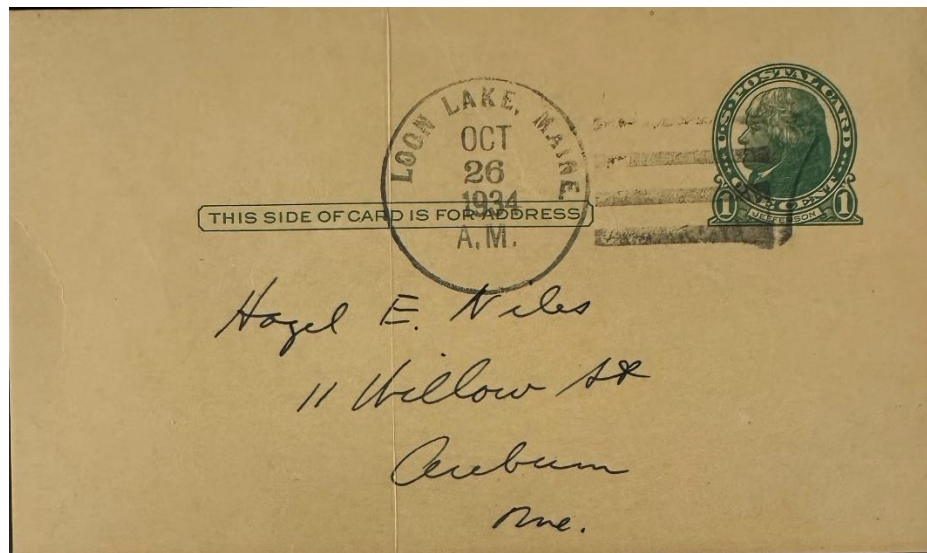 LOON LAKE, MAINE.
OCT
26
1934
A.M.
U.S. POSTAL CARD
ONE CENT
1 JEFFERSON 1
THIS SIDE OF CARD IS FOR ADDRESS
Hazel E. Niles
11 Willow St
Auburn
Me.